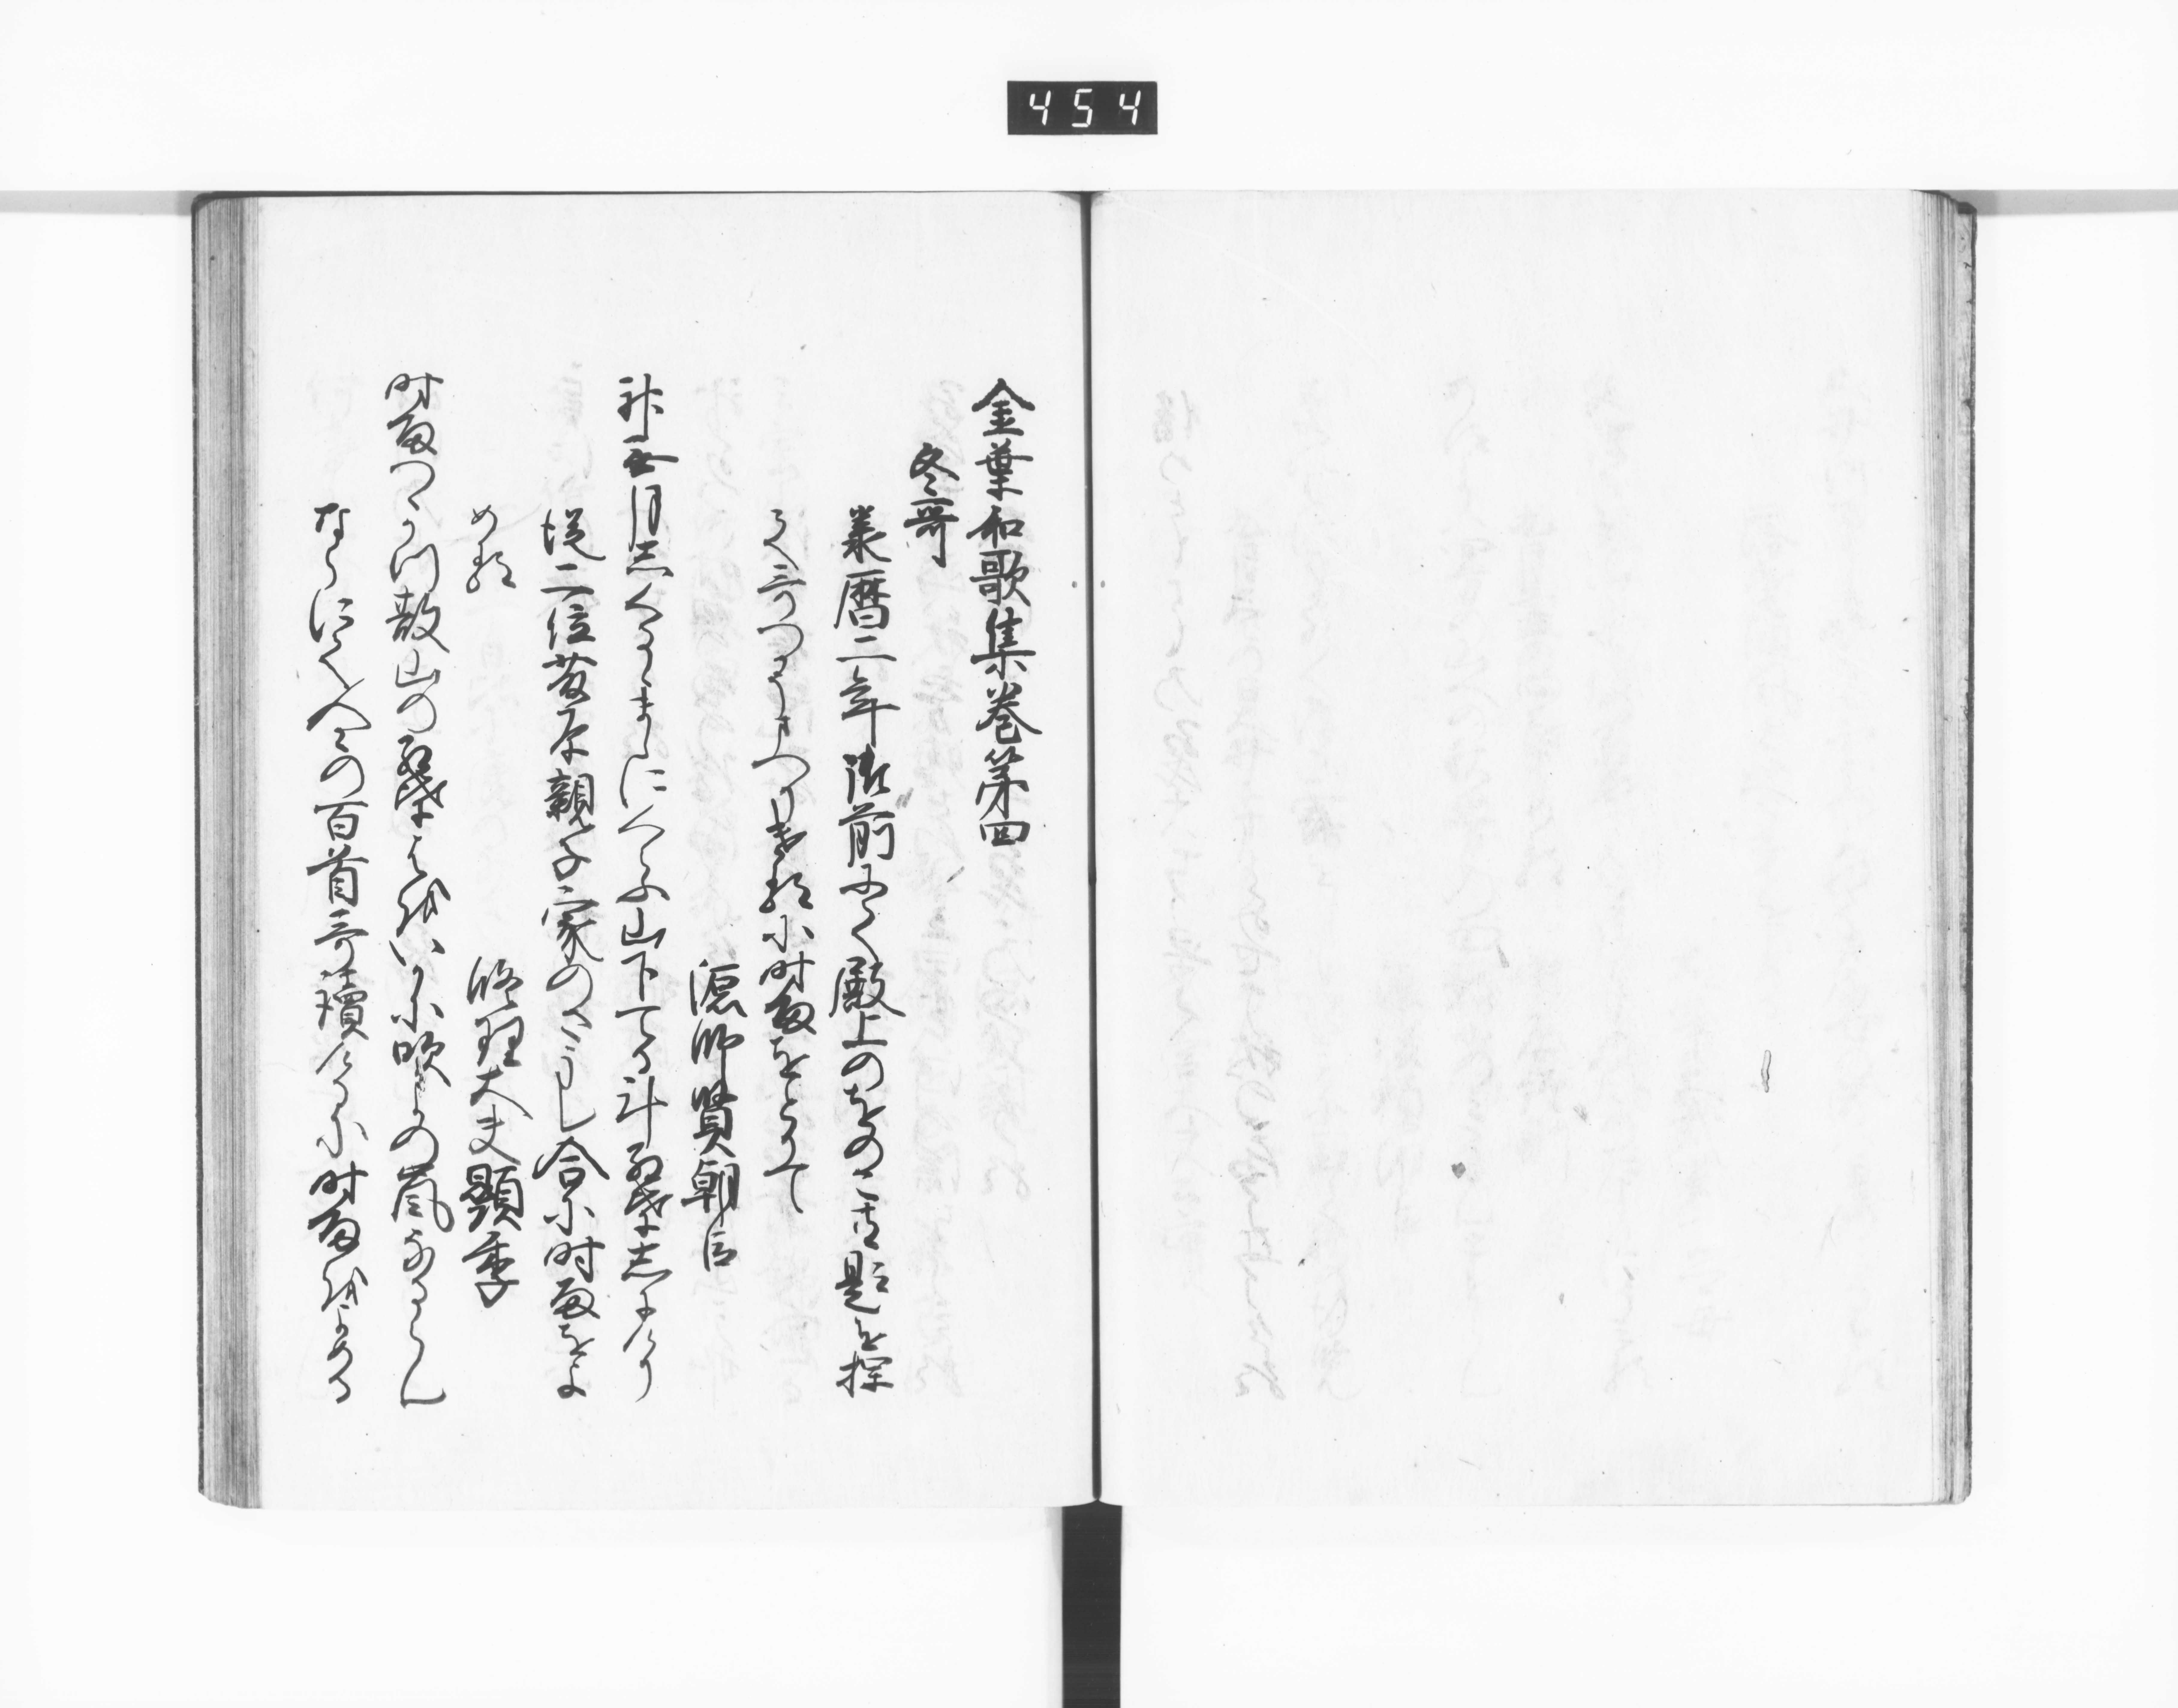 454
金葉和歌集巻第四
冬哥
承暦二年御前にて殿上のをのこ共題を探
て哥つかうまつりける小時雨をとりて
源師賢朝臣
神無月志くるゝまゝにくらふ山下てる斗紅葉志にけり
従二位藤原親子家のさうし合小時雨をよ
める
修理大夫顕季
時雨つゝかつ散山の紅葉はをいかに吹よの嵐なるらん
ならにて人々の百首哥讀けるに時雨をよめる